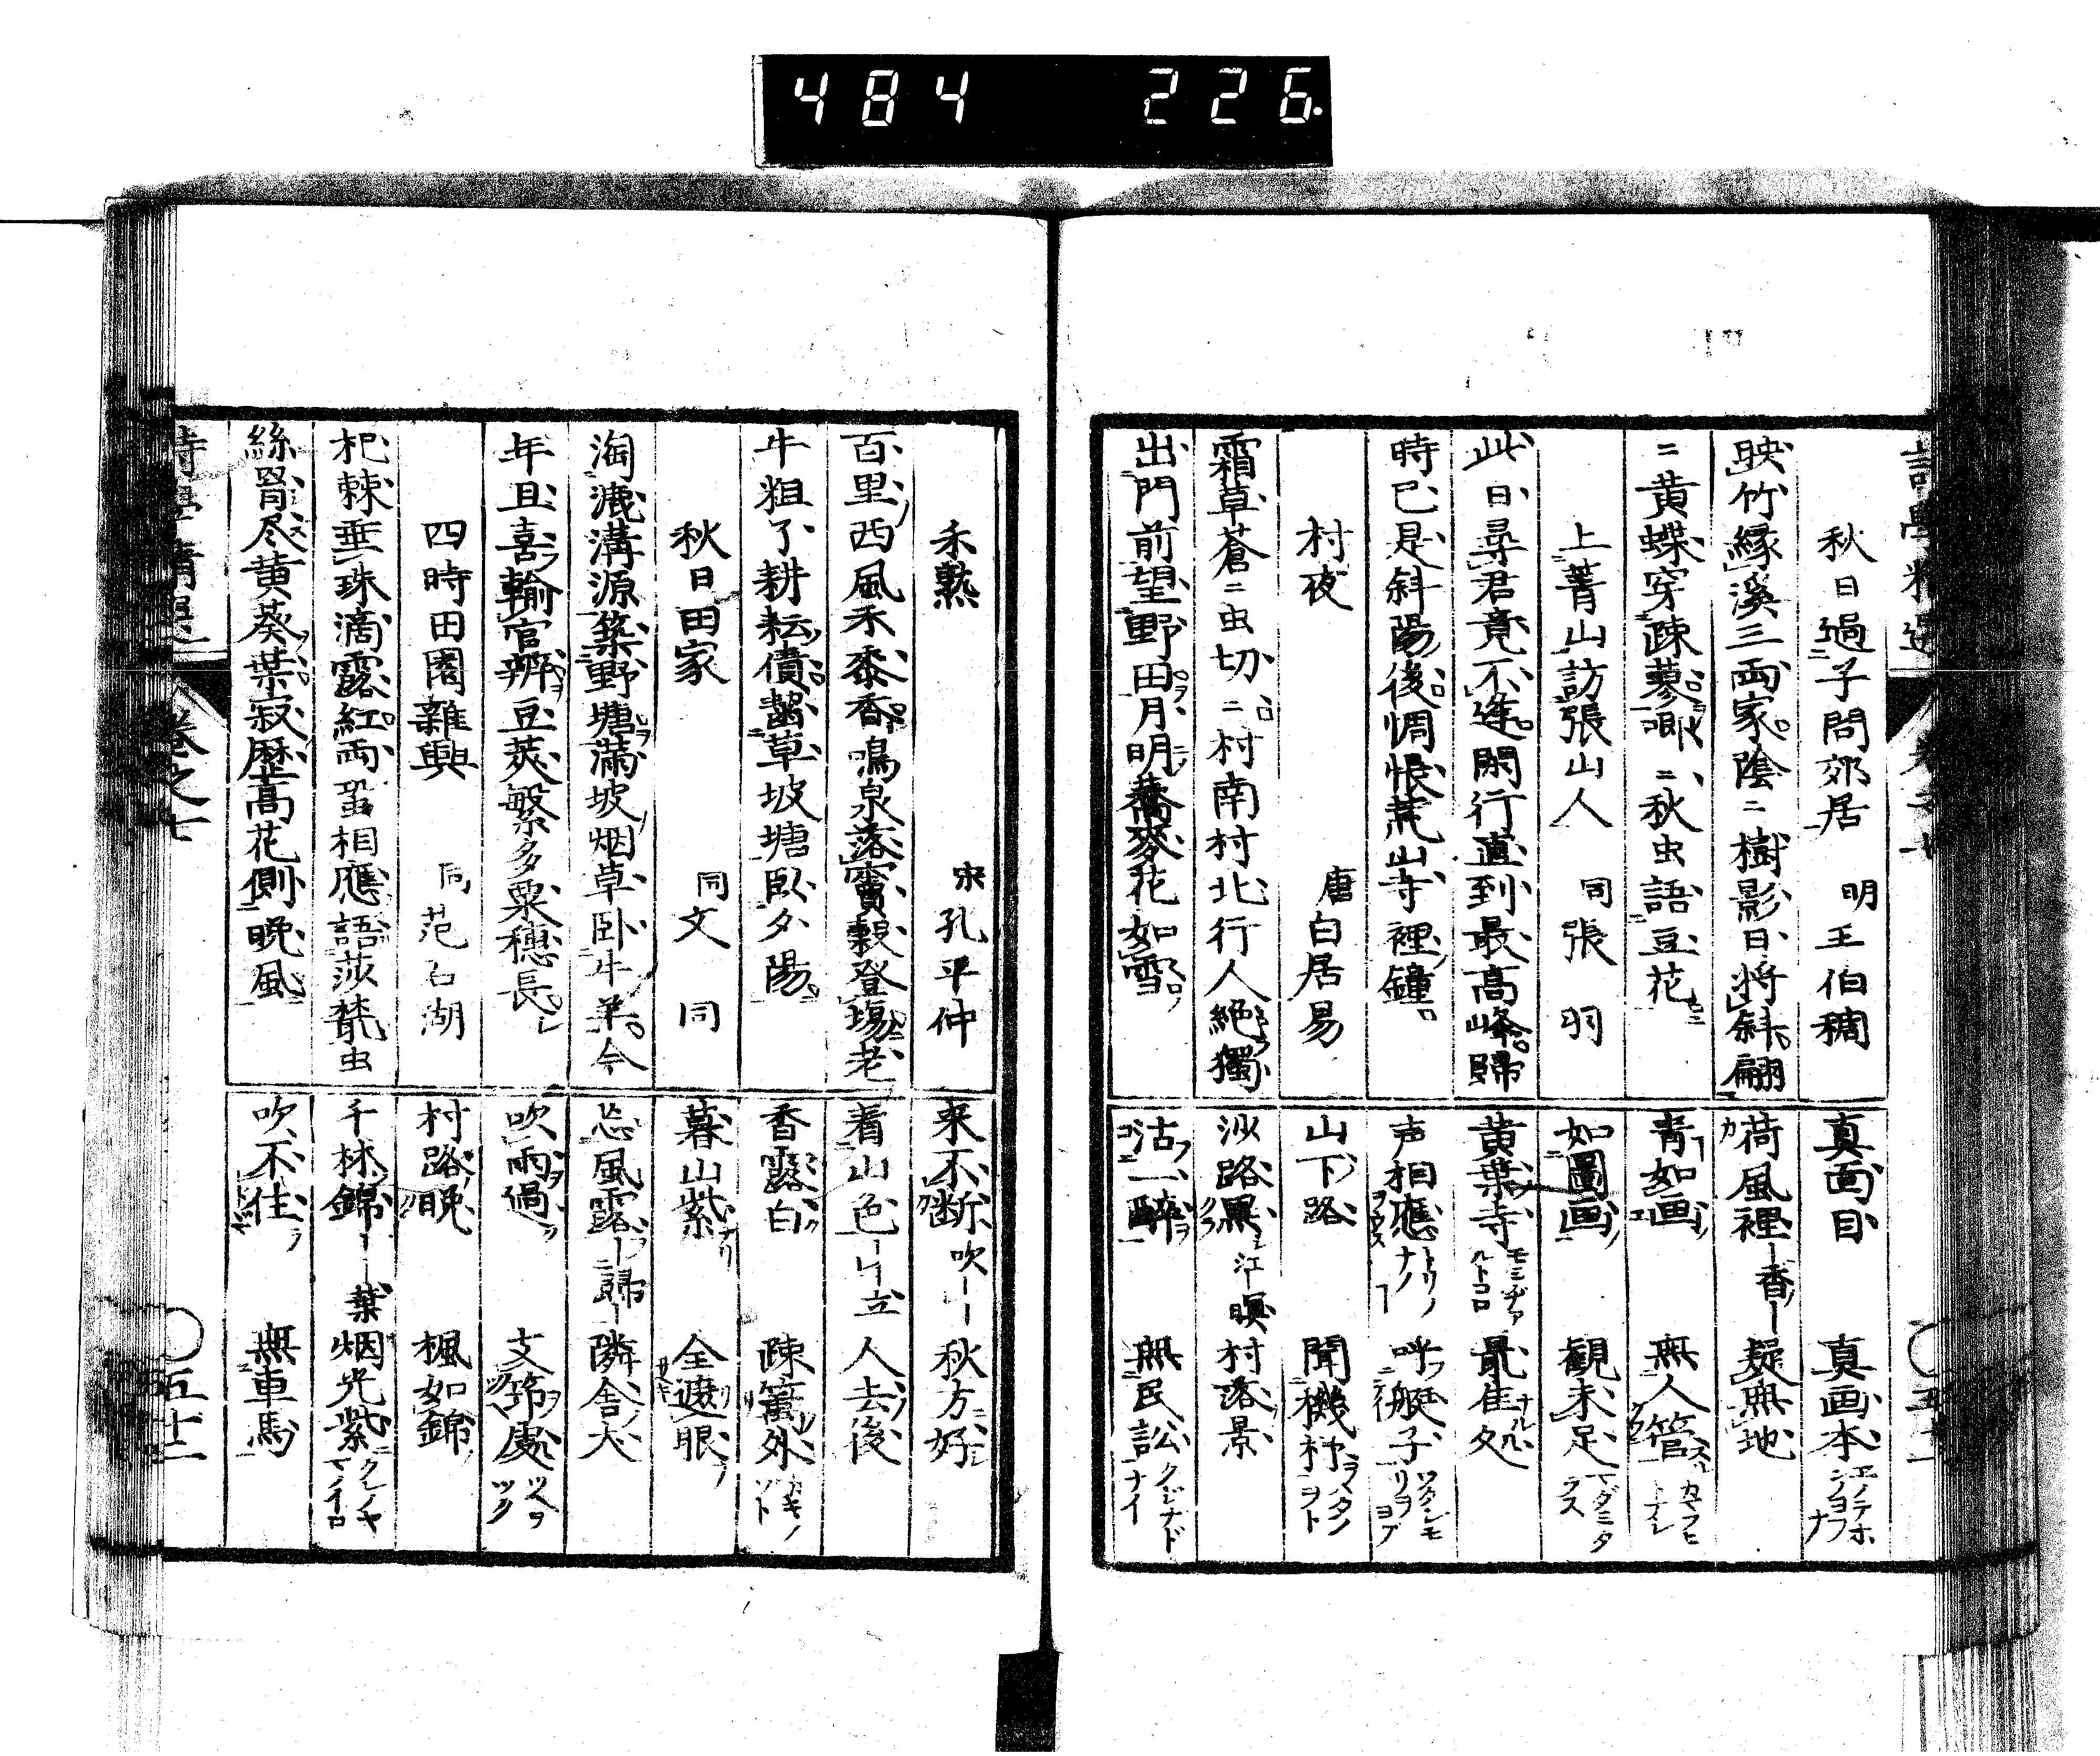 484 226.
秋日過子問郊居 明王伯稠
映竹縁溪三両家陰〻樹影日将斜翩
〻黄蝶穿疎蓼喞〻秋虫語豆花
上菁山訪張山人 同張羽
此日尋君竟不逢閑行直到最高峰歸
時已是斜陽後惆悵荒山寺裡鐘
村夜 唐白居易
霜草蒼〻虫切〻村南村北行人絶獨
出門前望野田月明蕎麥花如雪
真面目 真画本
荷風裡 香 疑無地
青如画 無人管
如圖画 観未足
黄葉寺 最佳処
声相應 呼艇子
山下路 聞機杼
沙路黒 江暝 村落景
沽一酔 無民訟
禾熟 宋孔平仲
百里西風禾黍香鳴泉落竇穀登場老
牛粗了耕耘債齧草坡塘臥夕陽
秋日田家 同文同
淘漉溝源築野塘満坡烟草卧牛羊今
年且喜輸官辨豆莢繁多粟穗長
四時田園雜興 同范石湖
杞棘垂珠滴露紅両蛩相應語莎叢虫
絲罥尽黄葵葉寂歴高花側晩風
来不断 吹 秋方好
看山色 立 人去後
香露白 疎籬外
暮山紫 全遮眼
怯風露 歸 隣舍犬
吹雨過 支筇處
村路晩 楓如錦
千林錦 葉 烟光紫
吹不住 無車馬
卷之七
五十二